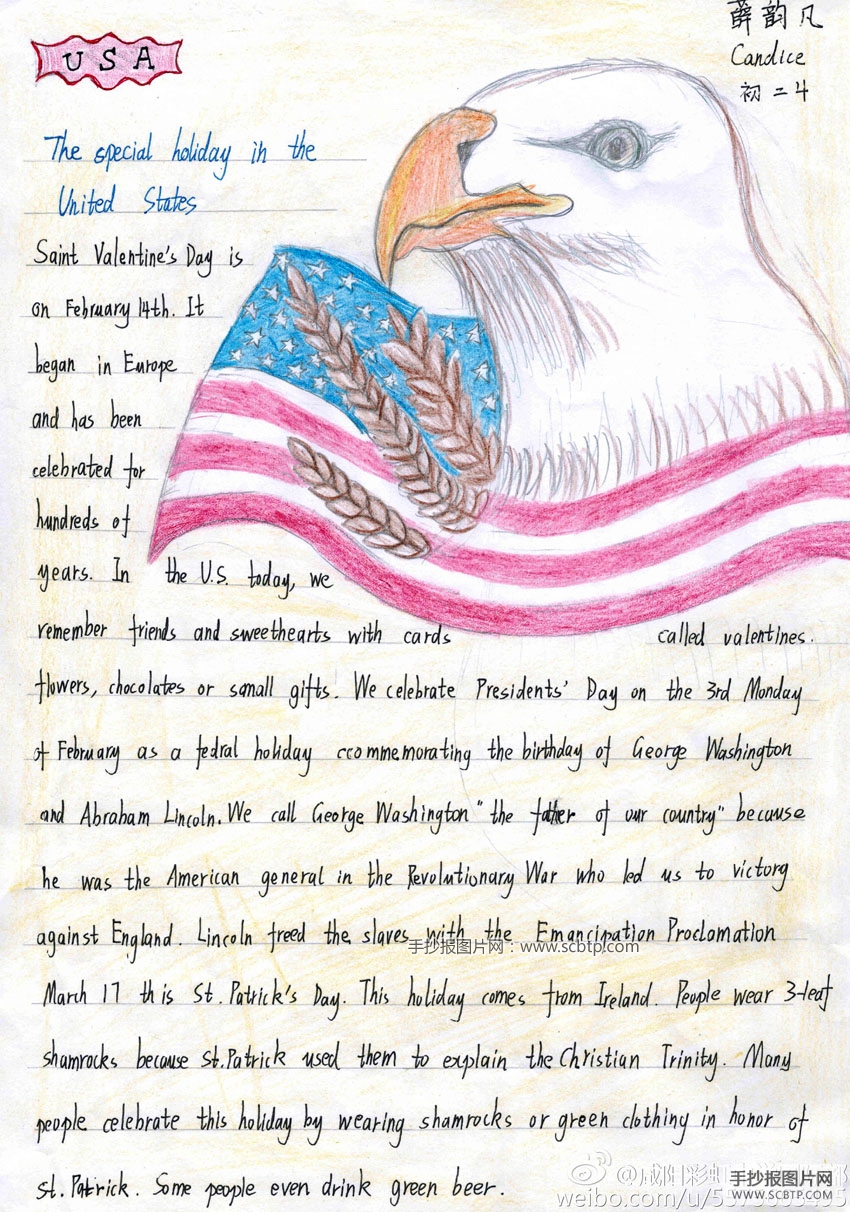 USA
薛韵凡
Candice
初二4
The special holiday in the
United States
Saint Valentine's Day is
on February 14th. It
began in Europe
and has been
celebrated for
hundreds of
years. In the U.S. today, we
remember friends and sweethearts with cards called valentines.
flowers, chocolates or small gifts. We celebrate Presidents' Day on the 3rd Monday
of February as a fedral holiday ccommemorating the birthday of George Washington
and Abraham Lincoln. We call George Washington "the father of our country" because
he was the American general in the Revolutionary War who led us to victorg
against England. Lincoln freed the slaves with the Emancipation Proclamation
手抄报图片网：www.scbtp.com
March 17 th is St. Patrick's Day. This holiday comes from Ireland. People wear 3-leaf
shamrocks because st.Patrick used them to explain the Christian Trinity. Many
people celebrate this holiday by wearing shamrocks or green clothing in honor of
st. Patrick. Some people even drink green beer.
@咸阳彩虹
weibo.com/u/
手抄报图片网
WWW.SCBTP.COM